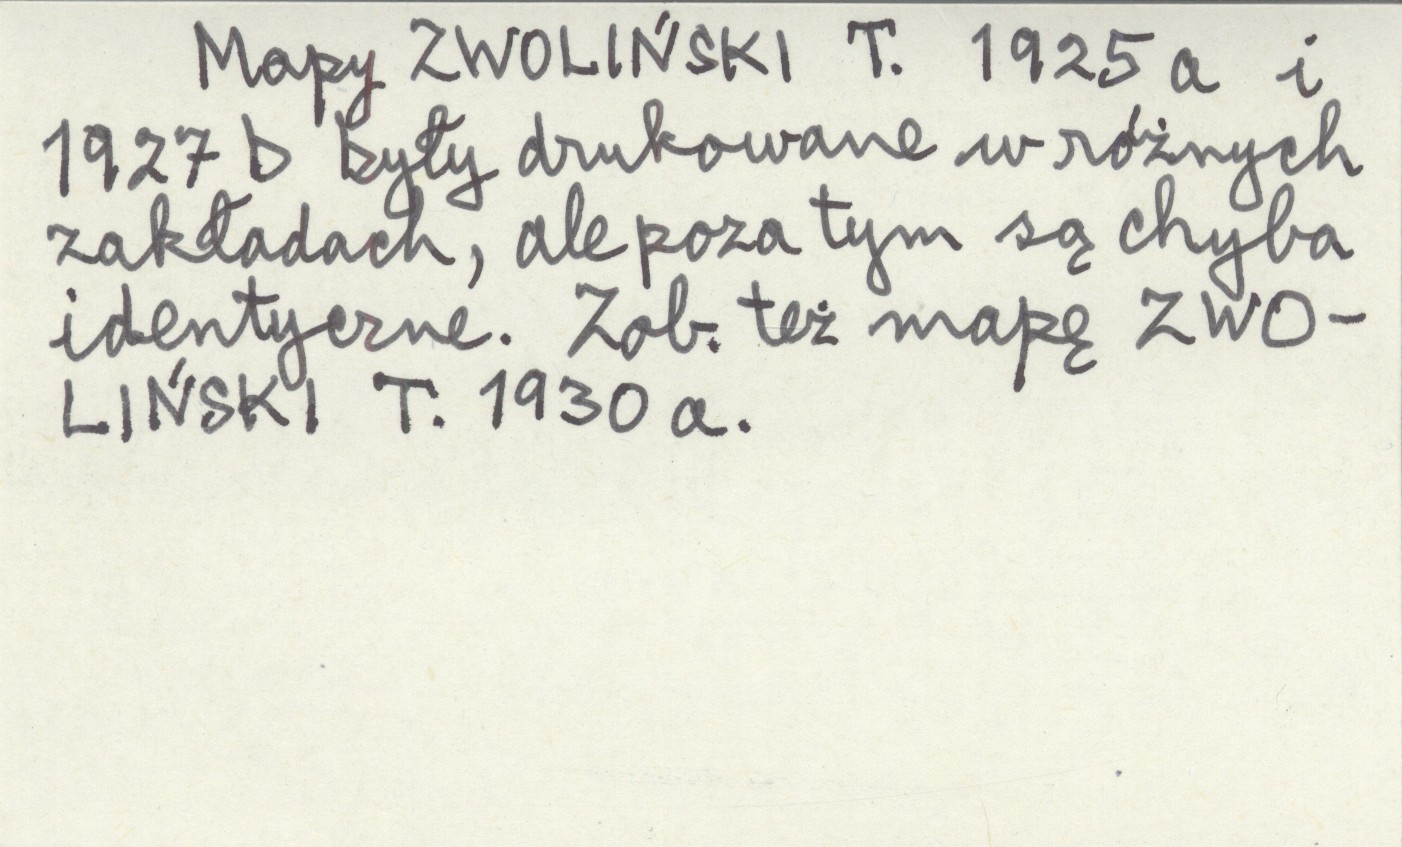 Mapy ZWOLIŃSKI T. 1925 a i
1927 b były drukowane w różnych
zakładach, ale poza tym są chyba
identyczne. Zob. też mapę ZWO-
LIŃSKI T. 1930 a.